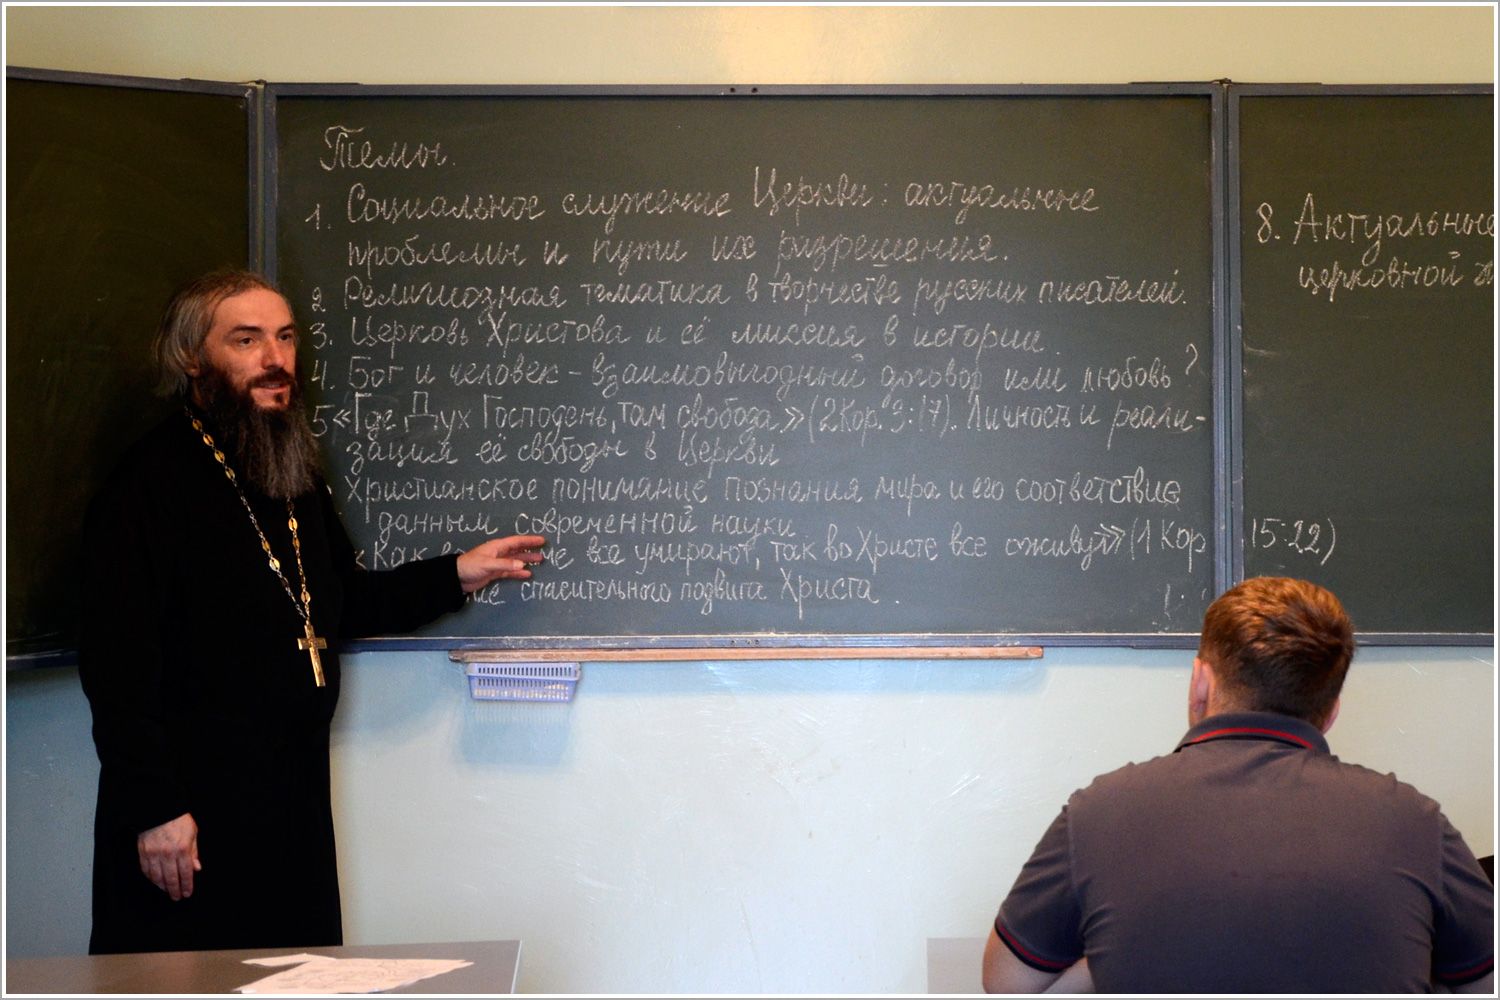 Темы.
1. Социальное служение Церкви: актуальные
проблемы и пути их разрешения.
2 Религиозная тематика в творчестве русских писателей.
3. Церковь Христова и её миссия в истории.
4. Бог и человек - взаимовыгодный договор или любовь?
5 «Где Дух Господень, там свобода» (2Кор. 3:17). Личность и реали-
зация её свободы в Церкви
Христианское понимание познания мира и его соответствие
данным современной науки
«Как все умирают, так во Христе все оживут» (1 Кор 15:22)
спасительного подвига Христа.
8. Актуальные
церковной